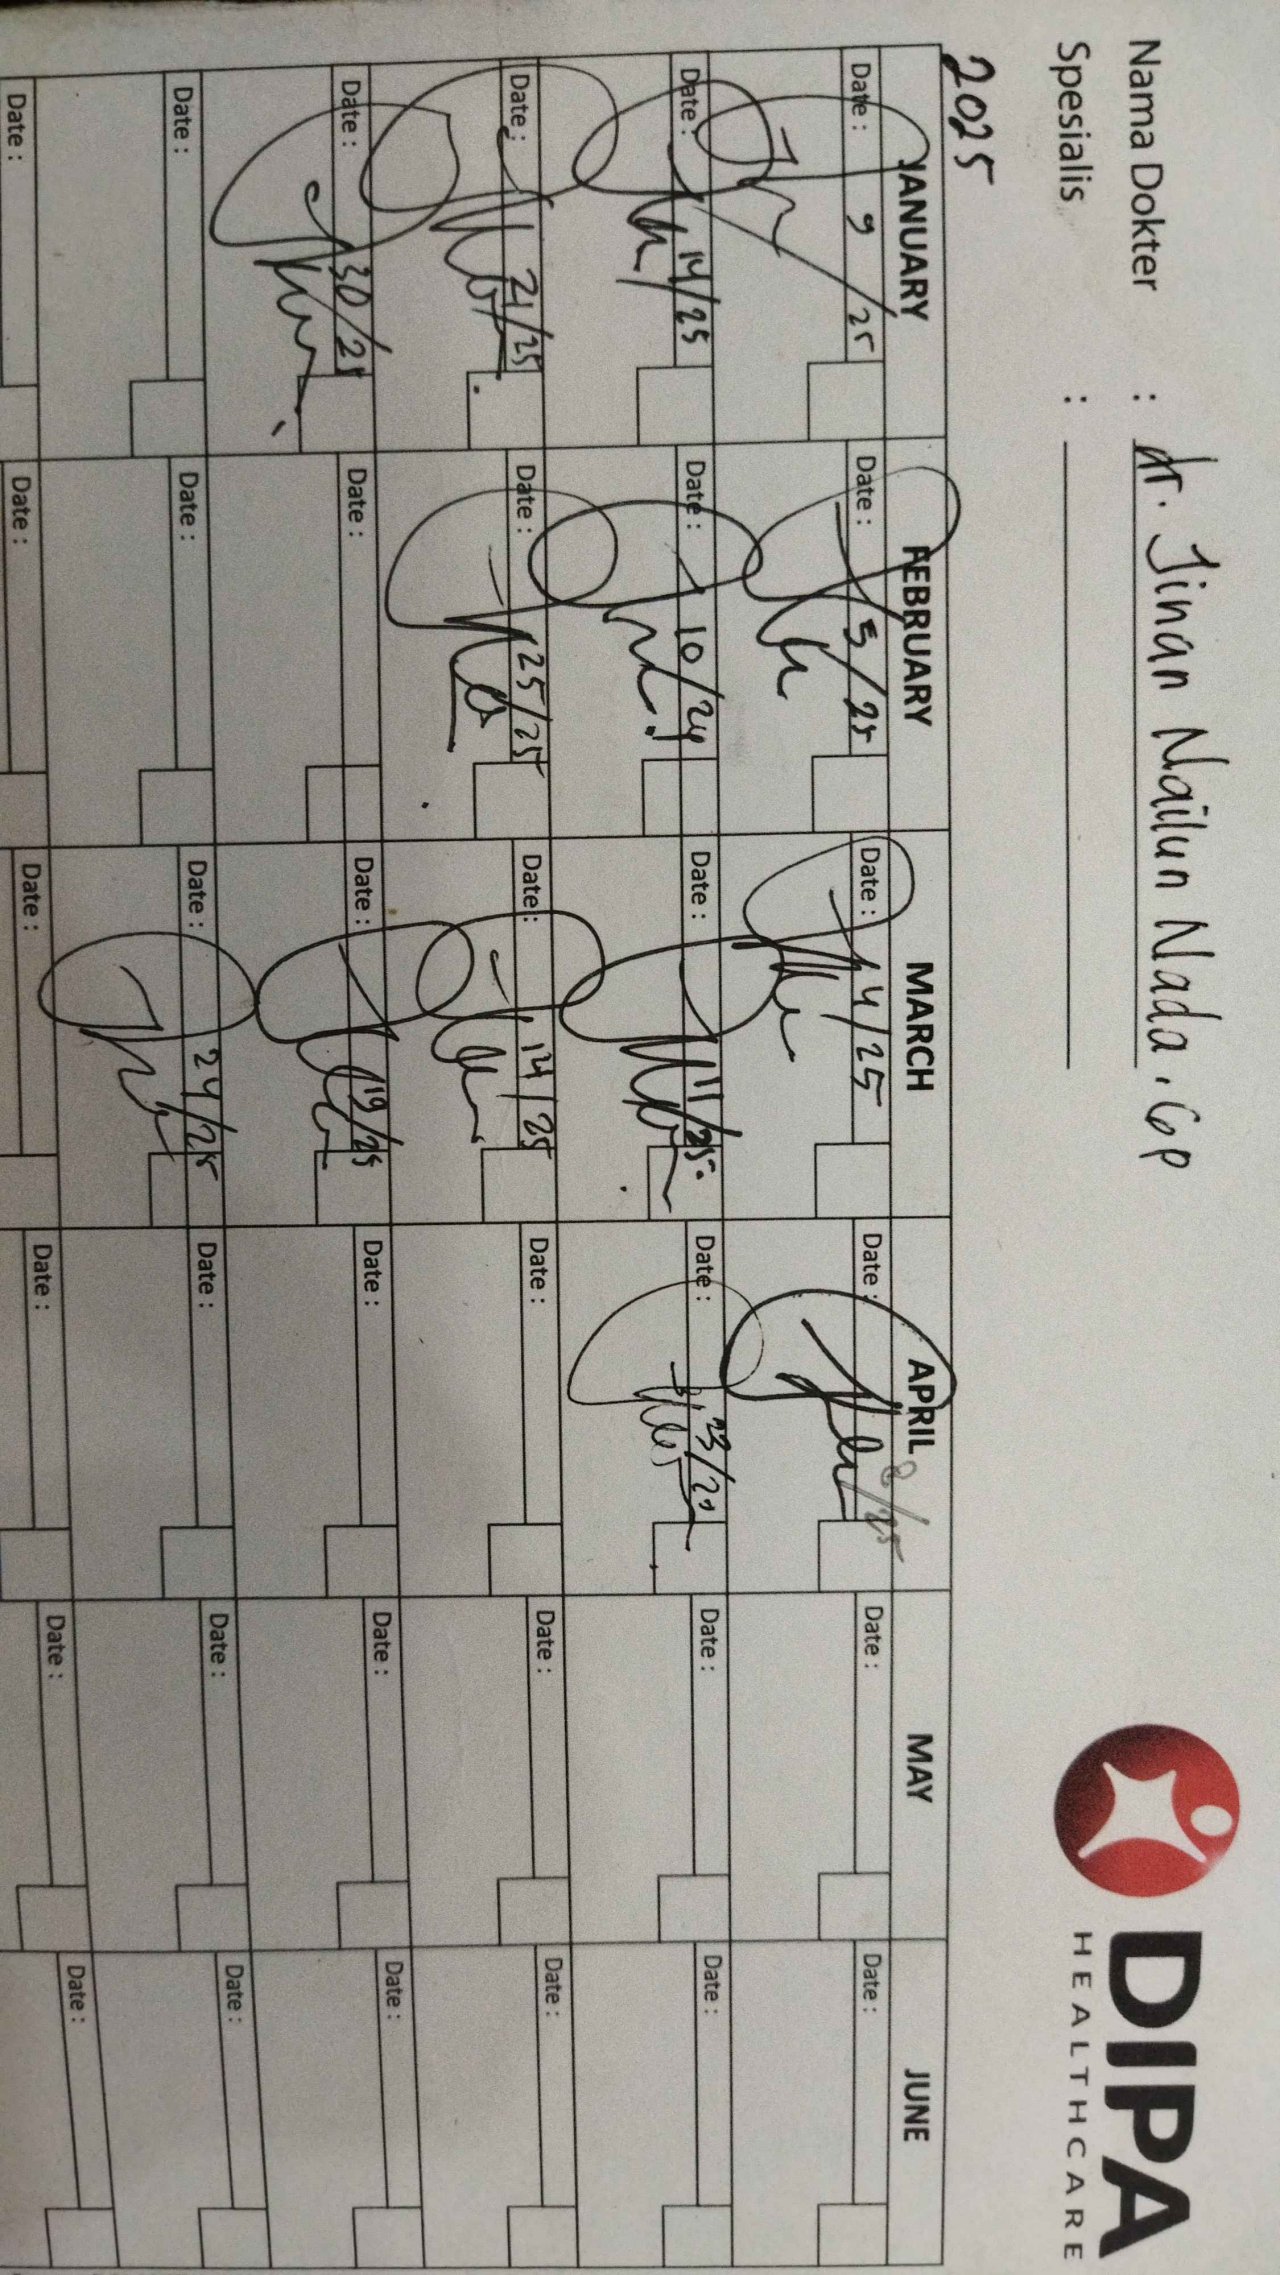 Nama Dokter : dr. Jinan Nailun Nada. Gp
Spesialis :
DIPA
HEALTHCARE
2025
JANUARY FEBRUARY MARCH APRIL MAY JUNE
Date : 9/25 Date : 5/25 Date : 4/25 Date : 8/25 Date : Date :
Date : 14/25 Date : 10/24 Date : 11/25 Date : 23/25 Date : Date :
Date : 21/25 Date : 25/25 Date : 14/25 Date : Date : Date :
Date : 30/25 Date : Date : 19/25 Date : Date : Date :
Date : Date : Date : 24/25 Date : Date : Date :
Date : Date : Date : Date : Date : Date :